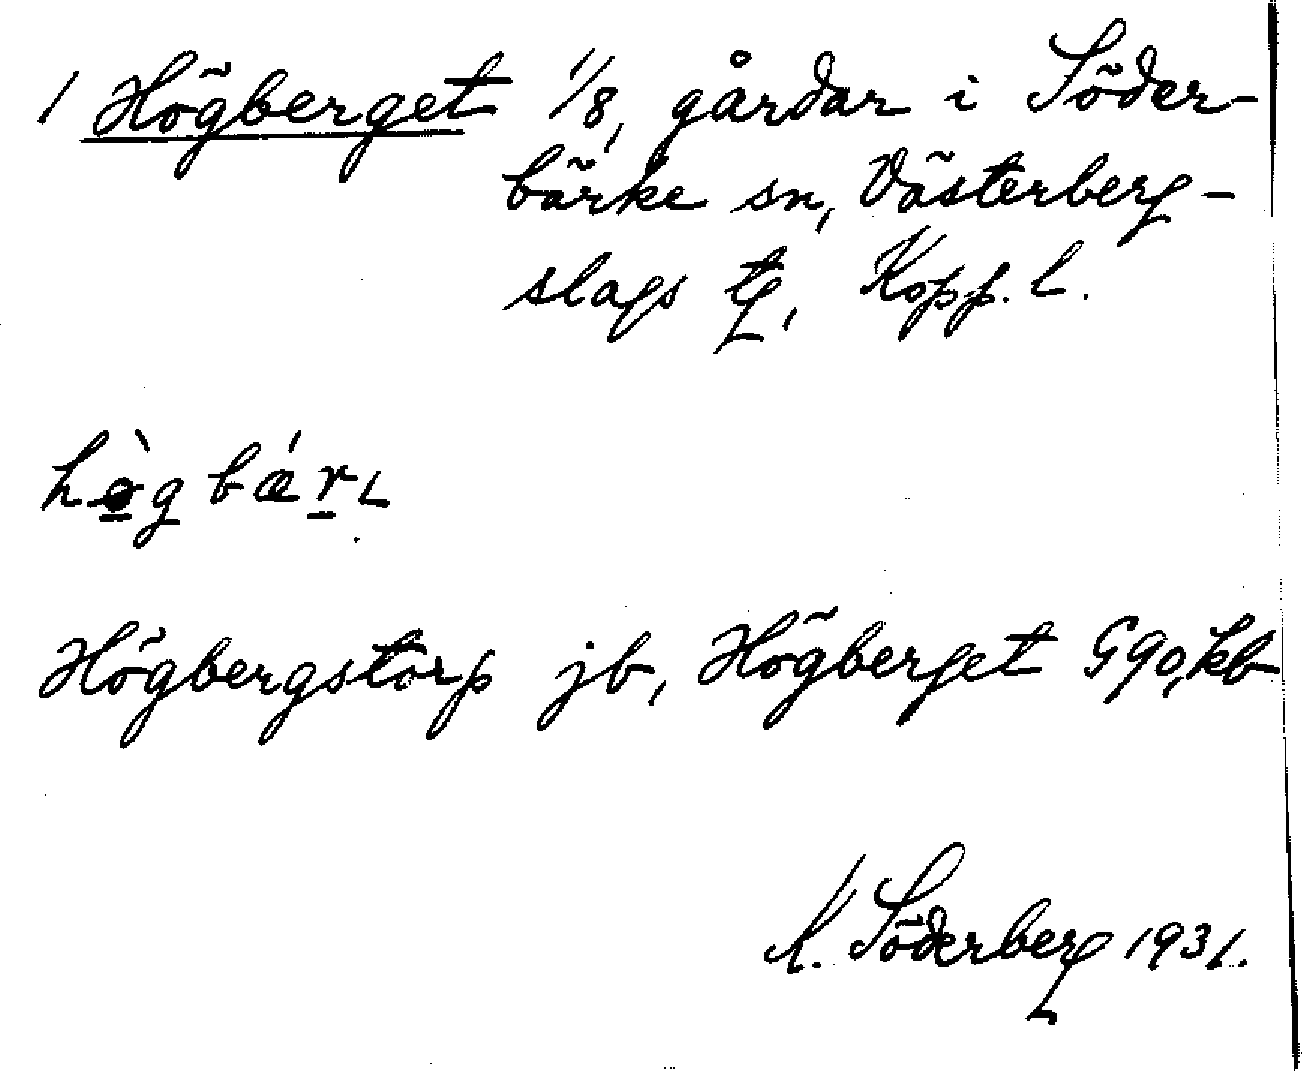 1 Högberget 1/8, gårdar i Söder-
bärke sn, Västerberg-
slags tg, Kopp. l.
hə̀g bǽrɩ
Högbergstorp jb, Högberget G90, kb
K. Söderberg 1931.